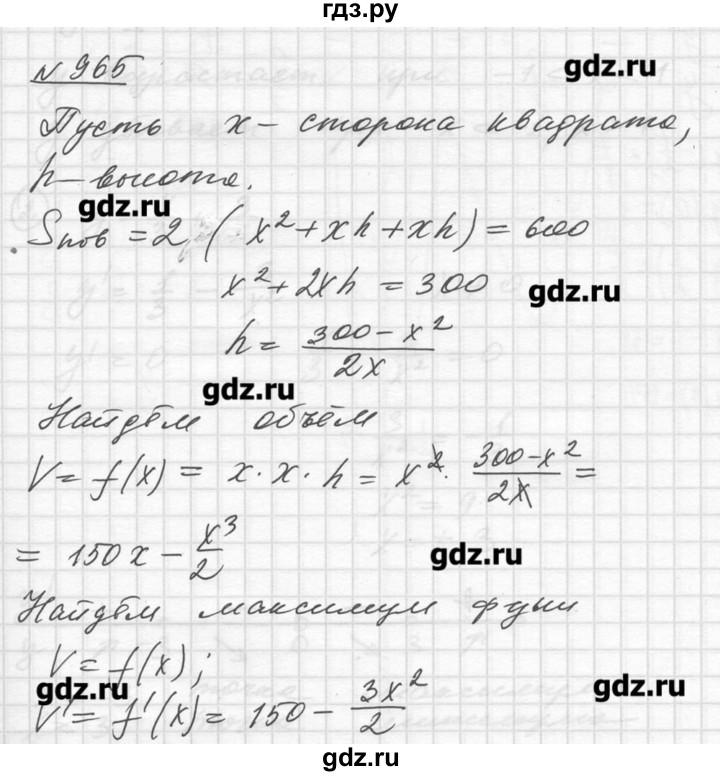 гдз.ру
N 965
gdz.ru
Пусть x – сторона квадрата,
h – высота.
gdz.ru
Sпов = 2 (x² + xh + xh) = 600
x² + 2xh = 300
gdz.ru
h = (300 - x²)/(2x)
gdz.ru
Найдём объём
V = f(x) = x · x · h = x² · (300 - x²)/(2x) =
= 150x - x³/2
gdz.ru
Найдём максимум функ
V = f(x);
gdz.ru
gdz.ru
V' = f'(x) = 150 - 3x²/2
gdz.ru